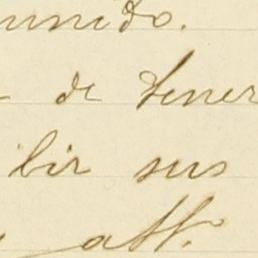 unido.
de tener
bir sus
att.